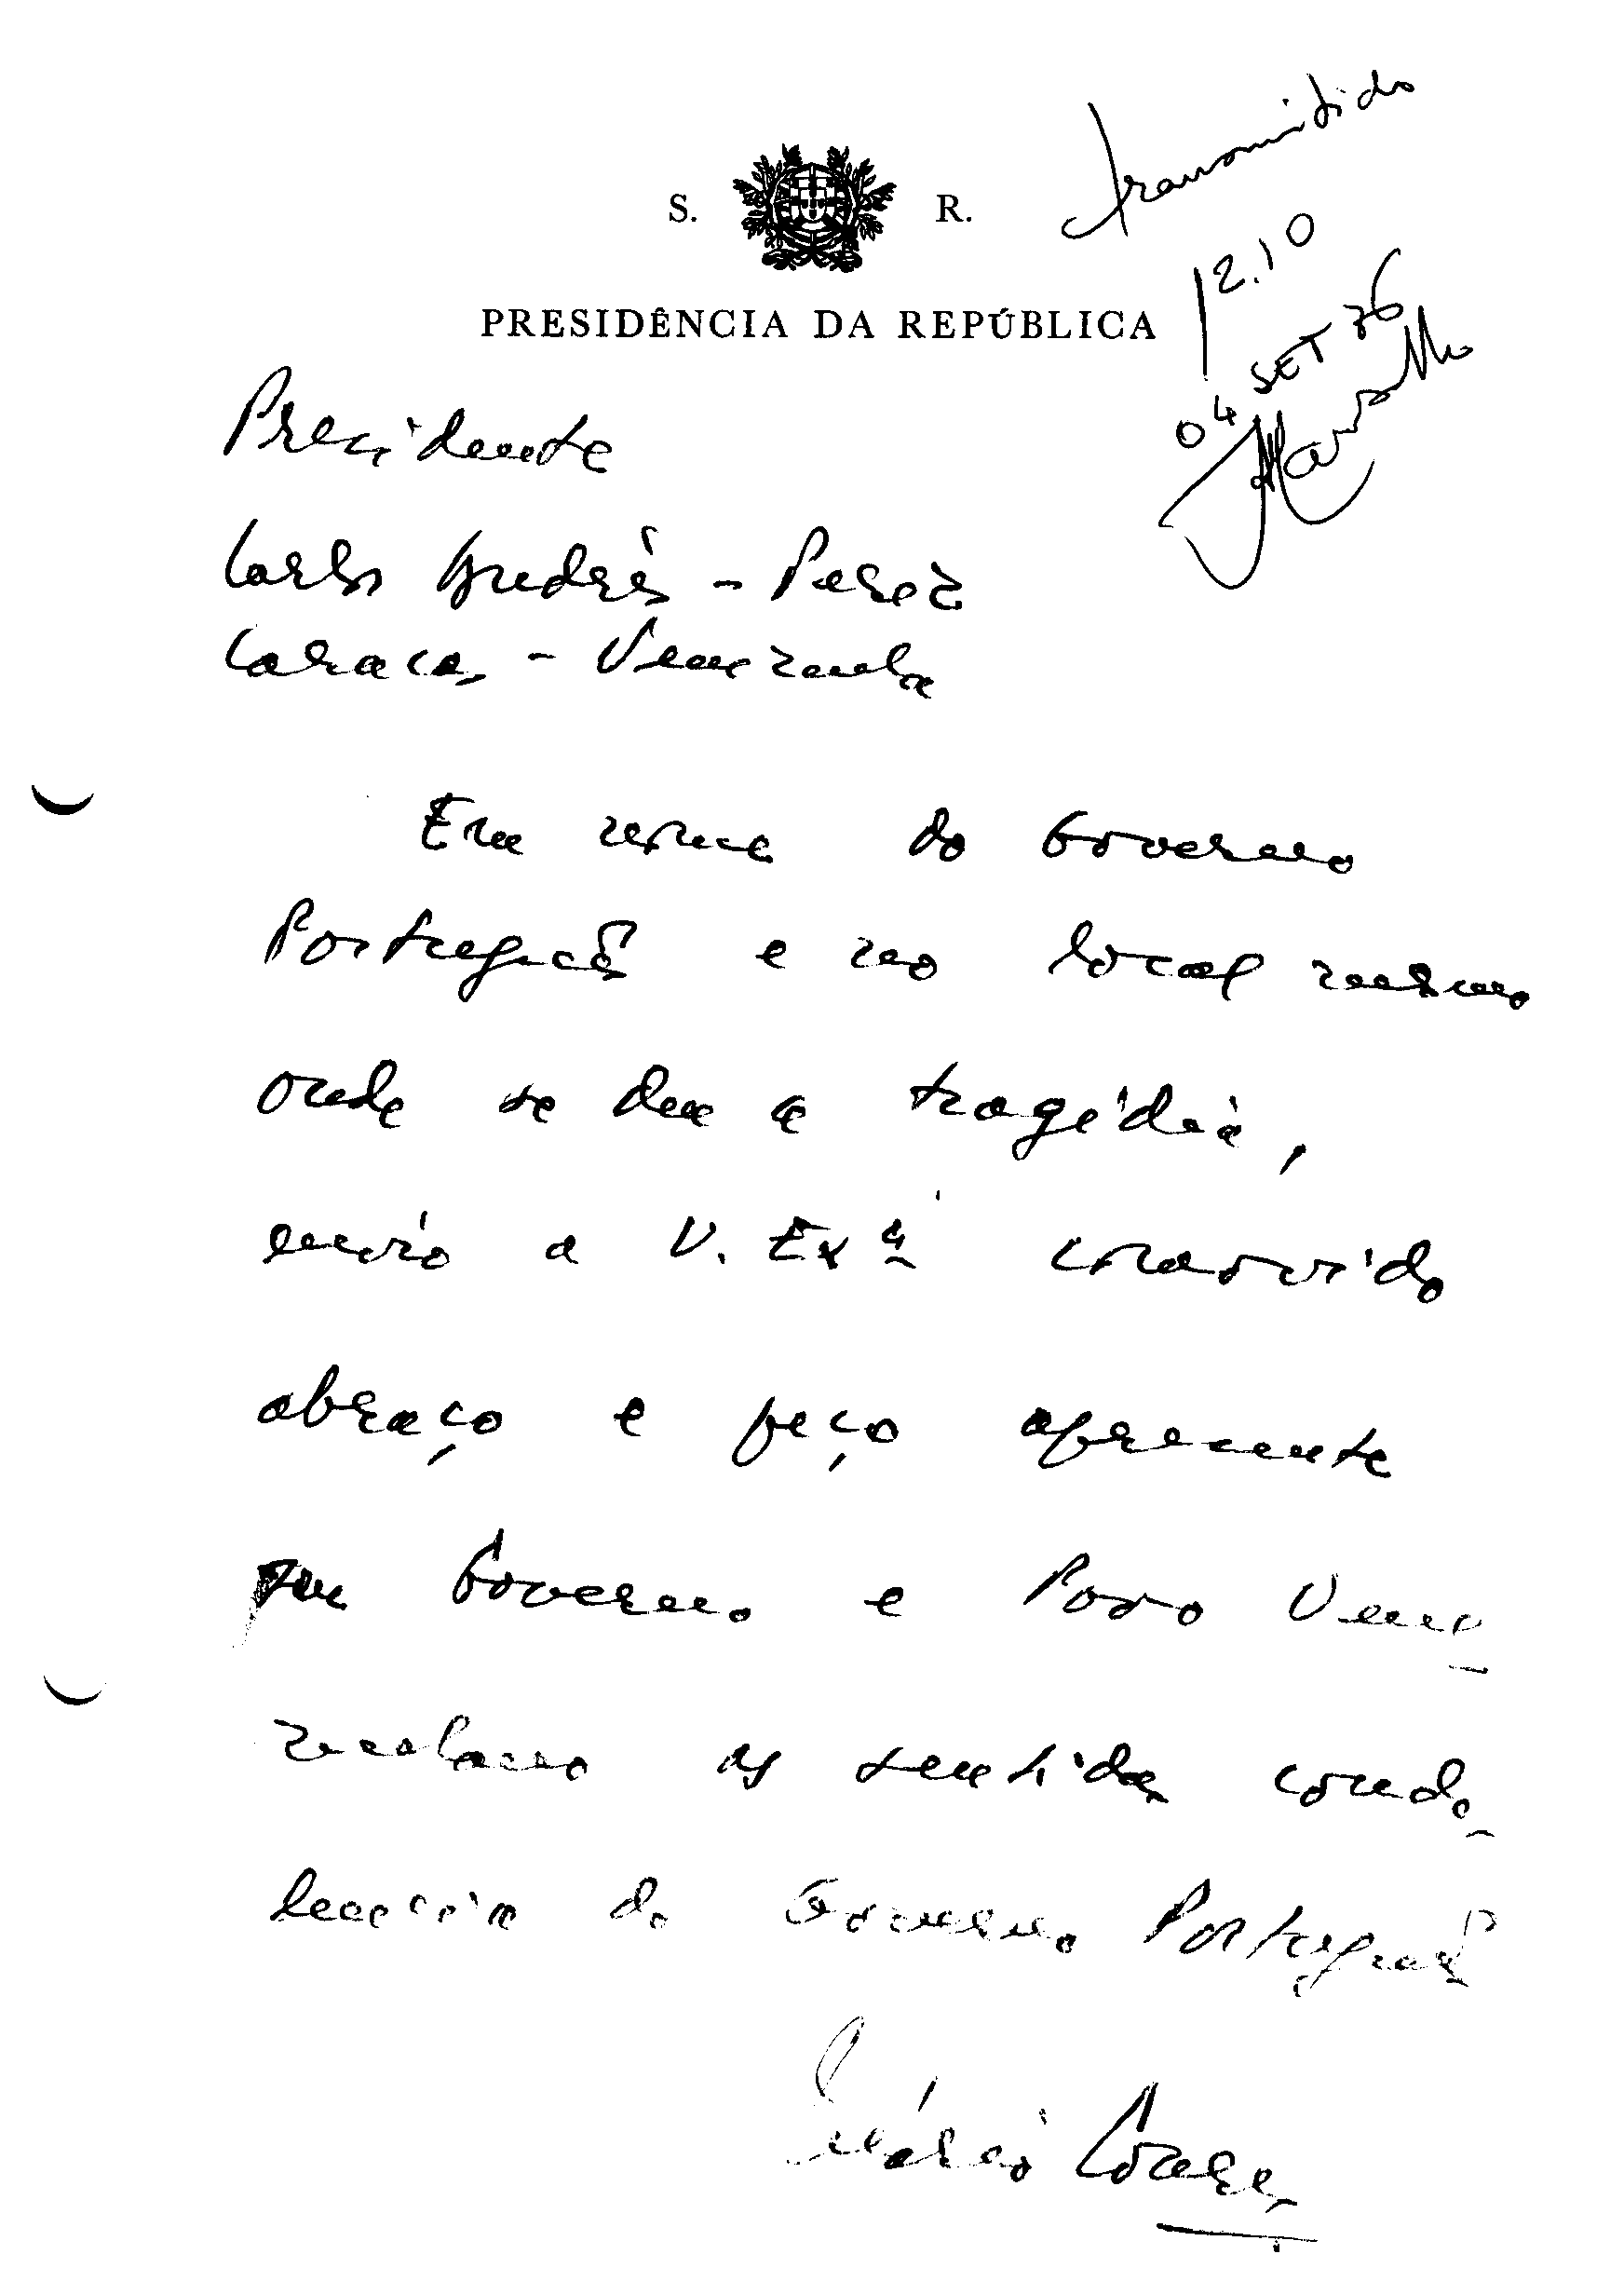 S. R.
PRESIDÊNCIA DA REPÚBLICA
transmitido
12.10
04 SET 76
Presidente
Carlos Andrés - Perez
Caracas - Venezuela
Em nome do Governo
Português e no local mesmo
onde se deu a tragédia,
envio a V. Exª comovido
abraço e peço apresente
Governo e Povo Vene-
zuelano as sentidas condo-
lências do Governo Português
Mário Soares